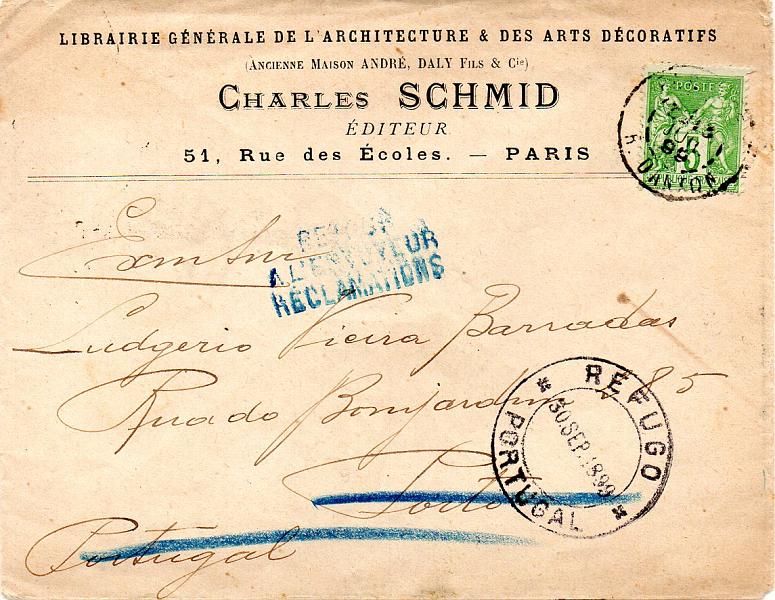 LIBRAIRIE GÉNÉRALE DE L'ARCHITECTURE & DES ARTS DÉCORATIFS
(ANCIENNE MAISON ANDRÉ, DALY FILS & Cie)
CHARLES SCHMID
ÉDITEUR
51, Rue des Écoles. — PARIS
POSTE
5
R. DANTON
RETOUR
A L'ENVOYEUR
RÉCLAMATIONS
Exmo Snr
Ludgerio Vieira Barradas
Rua do Bomjardim 485
Porto
Portugal
* REFUGO *
30.SEP.1899
PORTUGAL